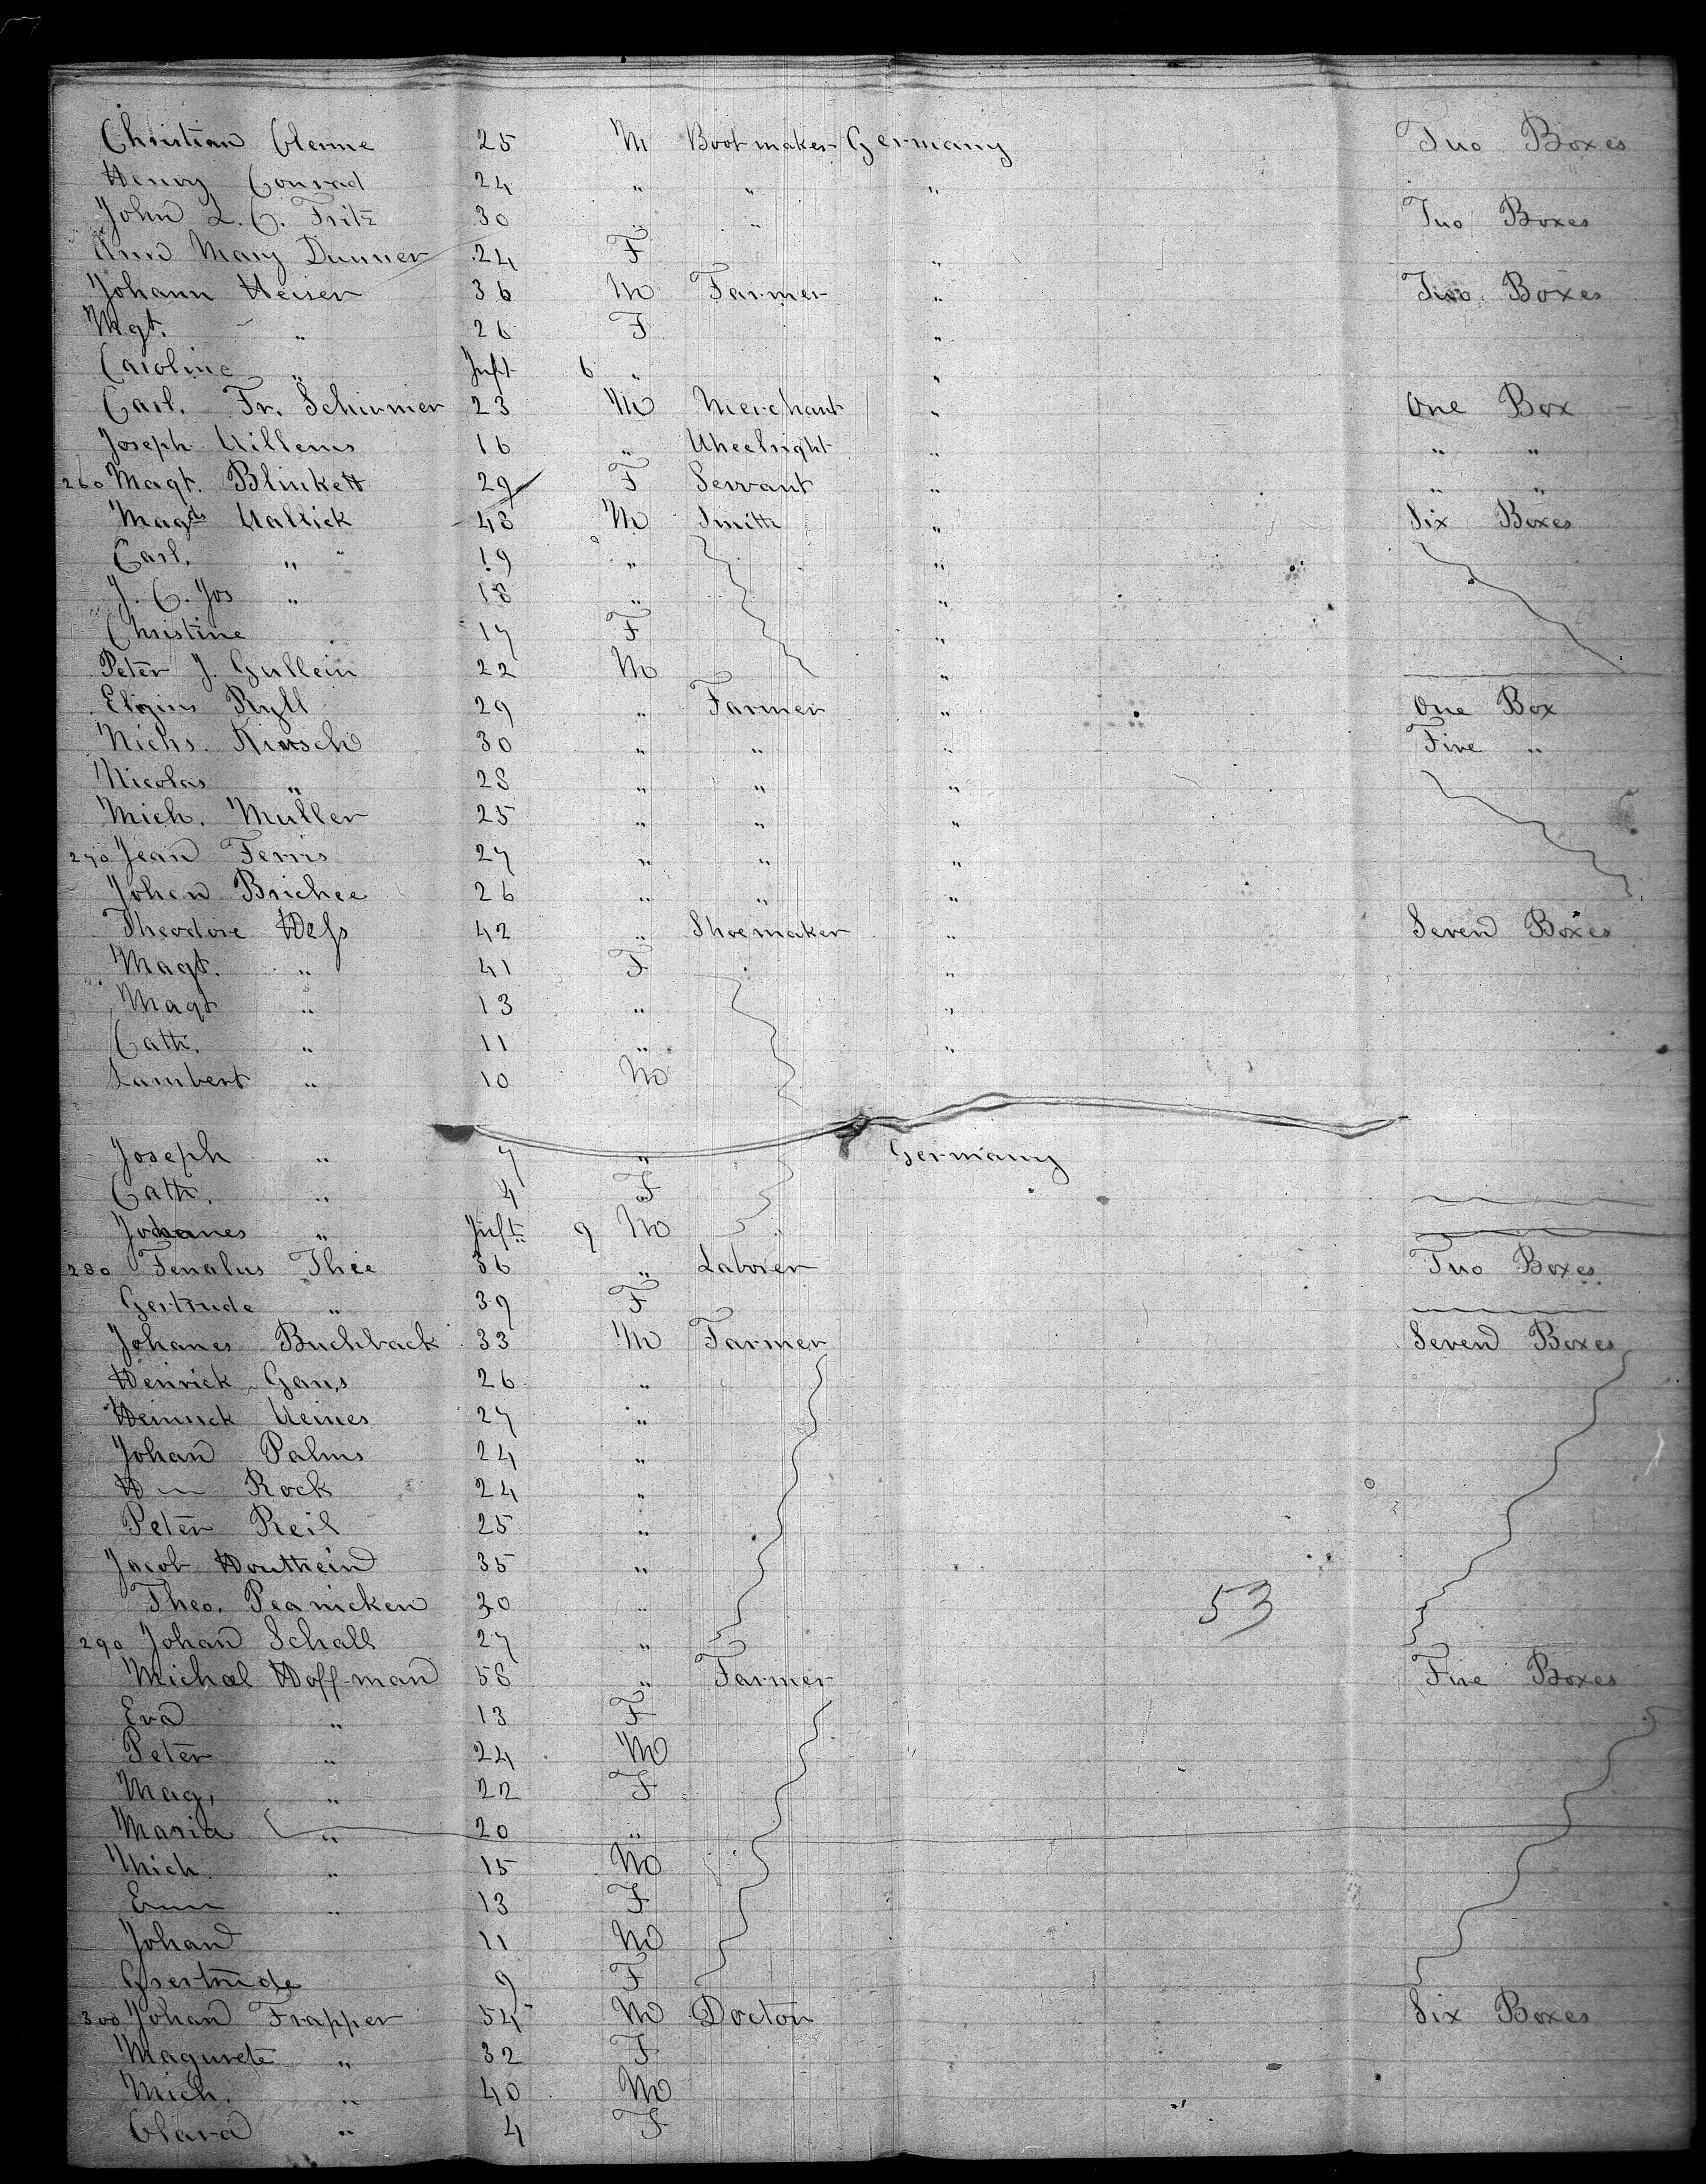 Christian Clerme 25 M Bootmaker Germany Two Boxes
Henry Conrad 24 " " "
John L. C. Fritz 30 " " Two Boxes
Ann Mary Dunner 24 F "
Johann Heiser 36 M Farmer " Two Boxes
Mgt. " 26 F "
Caroline " Inft 6 " "
Carl. Fr. Schirmer 23 M Merchant " One Box
Joseph Willems 16 " Wheelright " " "
260 Magt. Blinkett 29 F Servant " " "
Magds Wallick 43 M Smith " Six Boxes
Carl. " " 19 " "
J. C. Jos " 18 " "
Christine 17 F "
Peter J. Gullein 22 M "
Eligius Ryll 29 " Farmer " One Box
Nichs. Kirsch 30 " " " Five "
Nicolas " 28 " " "
Mich. Muller 25 " " "
270 Jean Ferris 27 " " "
Johan Brichee 26 " " "
Theodore Hess 42 " Shoemaker " Seven Boxes
Magt. " 41 F "
Magt " 13 " "
Cath. " 11 " "
Lambert " 10 M
Joseph " 7 " Germany
Cath. " 4 F
Johanes " Inft 9 M "
280 Thee 36 " Laborer Two Boxes
Gertrude " 39 F
Johanes Buchback 33 M Farmer Seven Boxes
Henrick Gans 26 "
Heinrick Weines 27 "
Johan Palms 24 "
Rock 24 "
Peter Reil 25 "
Jacob Houthein 35 "
Theo. Peanicken 30 " 53
290 Johan Schall 27 "
Michael Hoffman 58 " Farmer Five Boxes
Eva " 13 F
Peter " 24 M
Mag, " 22 F
Maria " 20 "
Mich " 15 M
" 13 F
Johan 11 M
Gsertrude 9 F
300 Johan Frapper 54 M Doctor Six Boxes
Magurete " 32 F
Mich. " 40 M
Clara " 4 F